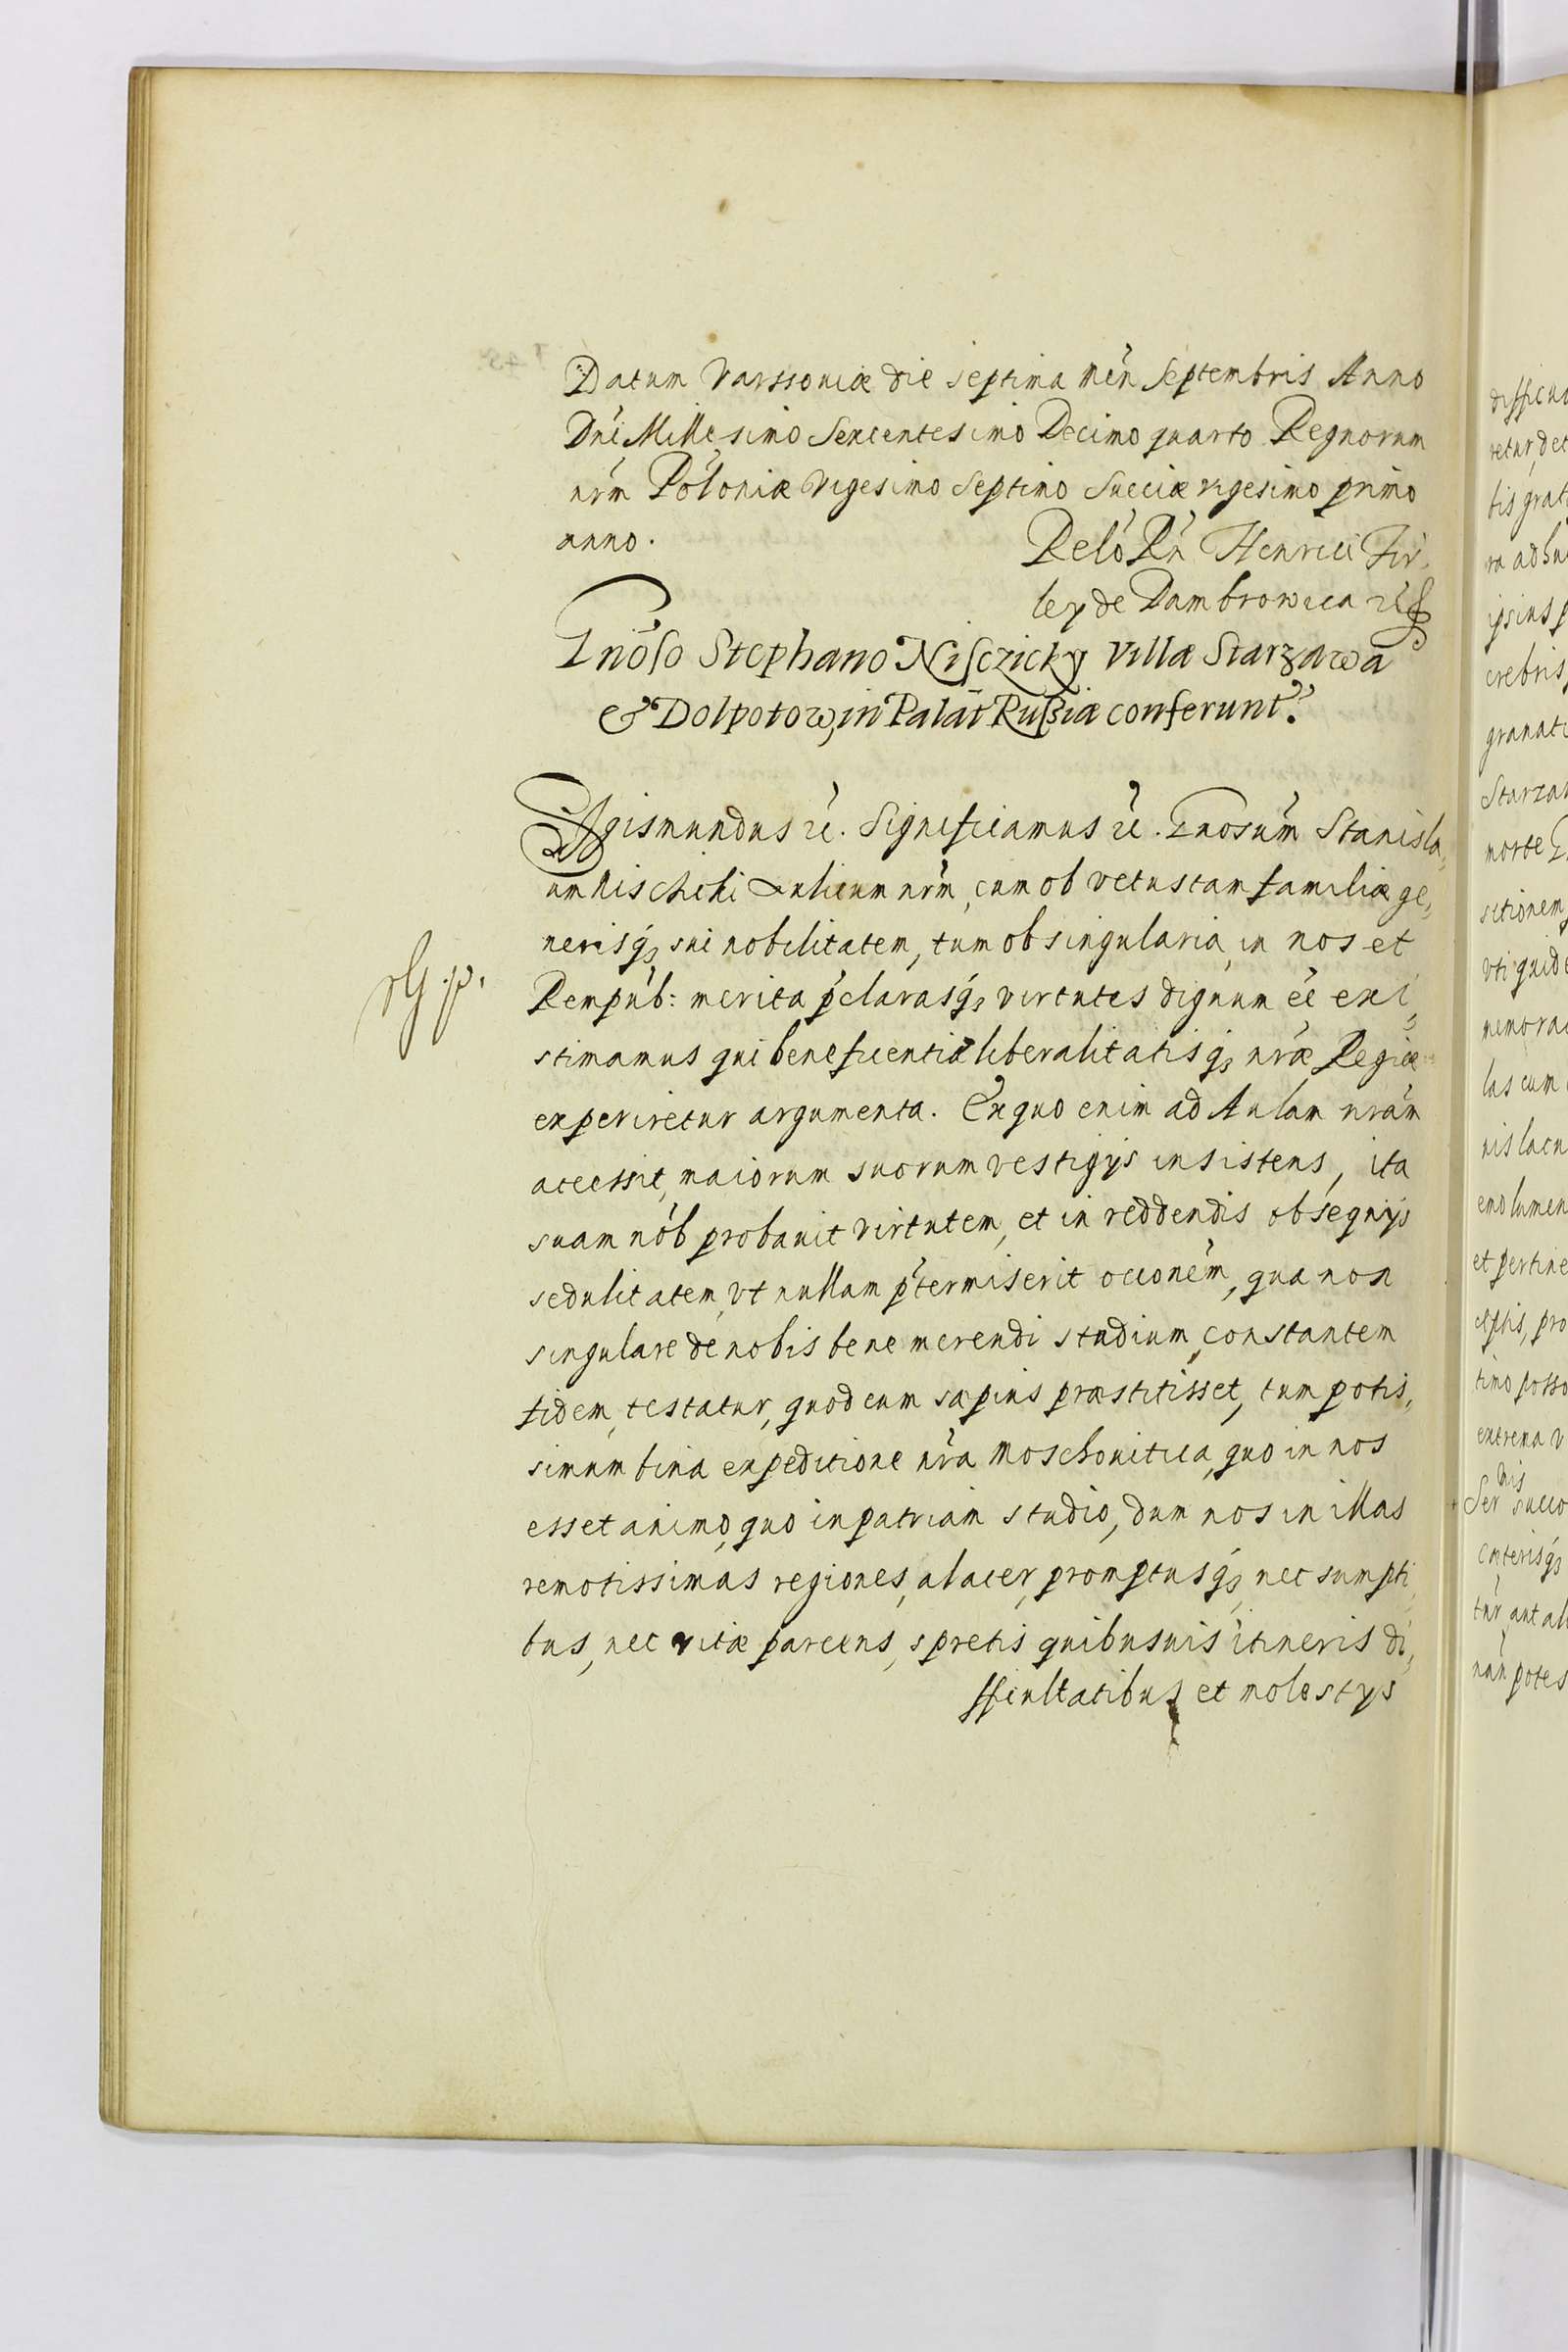 Datum Varssoviæ die septima men̄ Septembris Anno
Dni Millesimo Sexcentesimo Decimo quarto Regnorum
nrm Poloniæ Vigesimo Septimo Sueciæ vigesimo primo
anno.
Relo Rn Henrici Fir,
ley de Dambrowica
Gnoso Stephano Nisczicky Villæ Starzawa
& Dolpotow, in Palat Rußiæ conferunt.
Sigismundus rc. Significamus rc. Gnosum Stanisla,
um Nischichi Aulicum nrm, cum ob vetustam familiæ ge,
nerisq, sui nobilitatem, tum ob singularia, in nos et
Rempub: merita pclarasq, virtutes dignum ee exi,
stimamus qui beneficentiæ liberalitatisq, nræ Regiæ
experiretur argumenta. Ex quo enim ad Aulam nram
accessit, maiorum suorum vestigijs insistens, ita
suam nob probauit virtutem, et in reddendis obsequijs
sedulitatem, vt nullam ptermiserit occonem, qua non
singulare de nobis bene merendi studium, constantem
fidem, testatur, quod cum sæpius præstitisset, tum potis,
simum bina expeditione nra Moschouitica, quo in nos
esset animo, quo in patriam studio, dum nos in illas
remotissimas regiones, alacer, promptusq, nec sumpti,
bus, nec vitæ parcens, spretis quibusuis itineris di,
fficultatibus et molestys